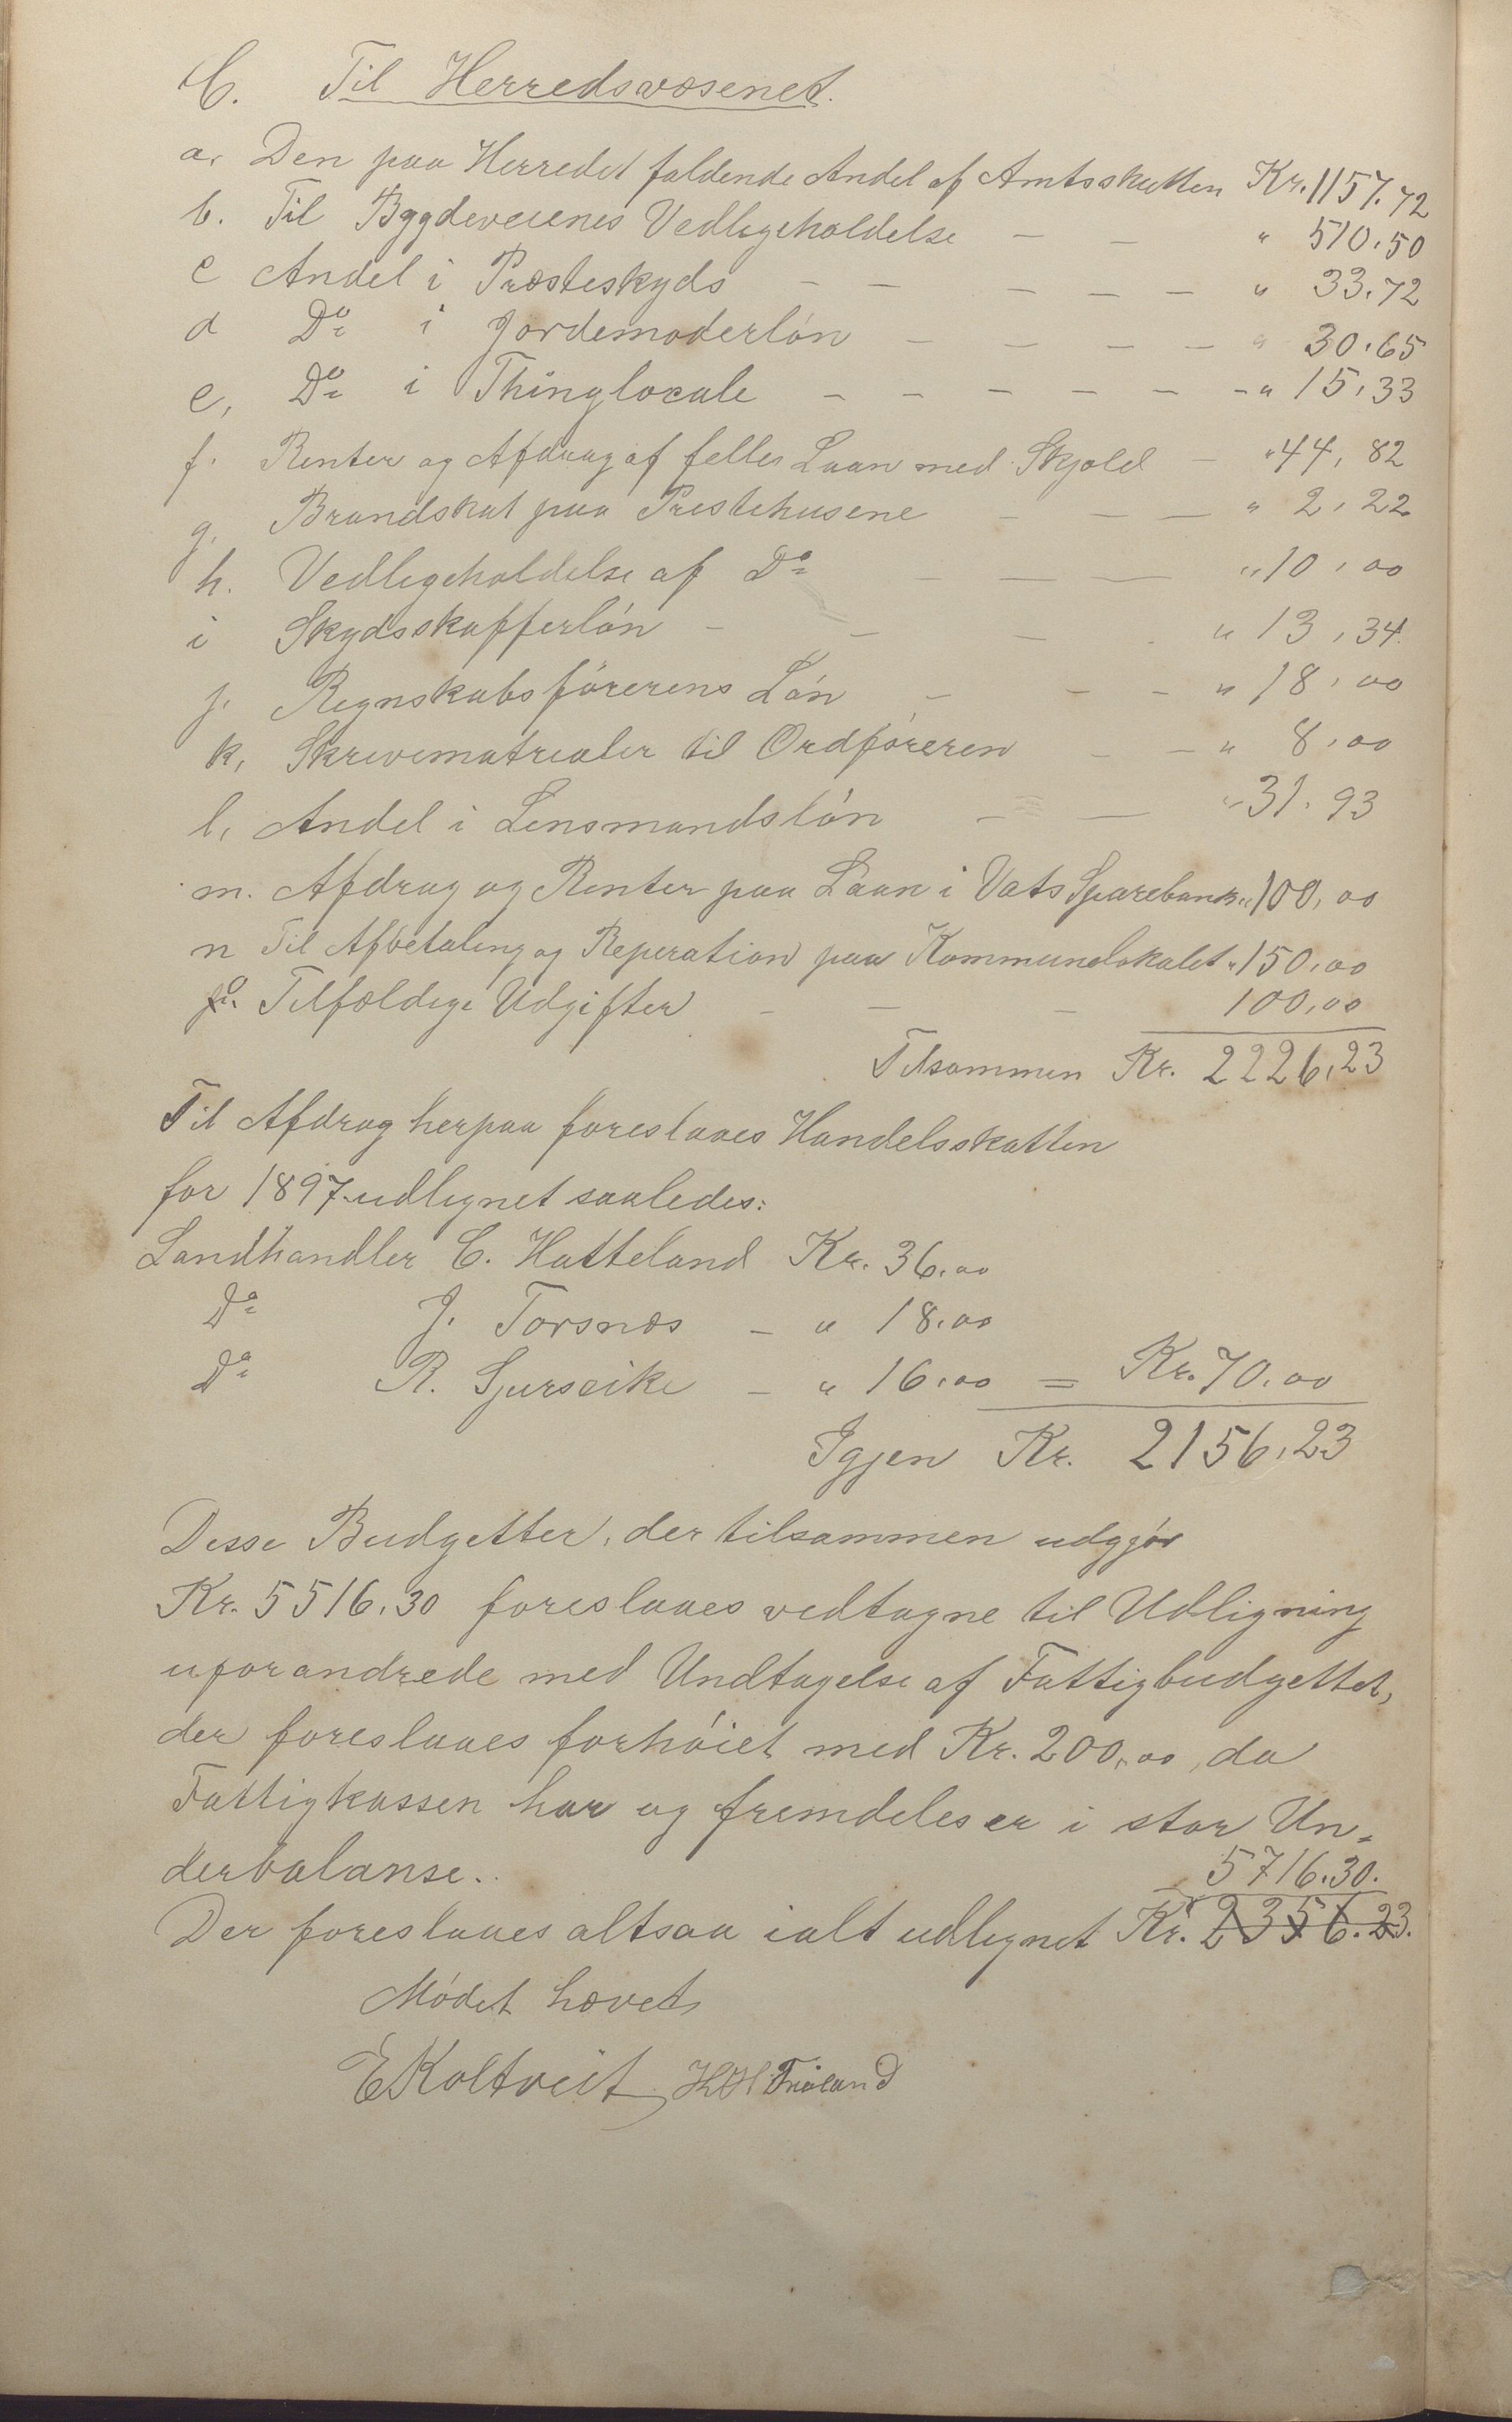 C. Til Herredsvæsenet.
a. Den paa Herredet faldende Andel af Amtsskatten Kr. 1157.72
b. Til Bygdeveienes Vedligeholdelse — — " 510.50
c Andel i Præsteskyds — — — — — " 33.72
d Do i Jordemoderløn — — — — " 30.65
e, Do i Thinglocale — — — — — — " 15.33
f. Renter og Afdrag af felles Laan med Skjold — " 44,82
g. Brandskat paa Prestehusene — — — " 2,22
h. Vedligeholdelse af Do — — — " 10,00
i Skydsskafferløn — — — " 13,34
j. Regnskabsførerens Løn — — — " 18,00
k, Skrivematrialer til Ordføreren — — " 8,00
l, Andel i Lensmandsløn — — " 31,93
m. Afdrag og Renter paa Laan i Vats Sparebank " 100,00
n Til Afbetaling og Reperation paa Kommunelokalet " 150,00
o. Tilfældige Udgifter — — — 100,00
Tilsammen Kr. 2226,23
Til Afdrag herpaa foreslaaes Handelsskatten
for 1897 udlignet saaledes:
Landhandler C. Hatteland Kr. 36.00
Do J. Torsnæs — " 18.00
Do R. Sjurseike — " 16.00 = Kr. 70.00
Igjen Kr. 2156,23
Desse Budgetter, der tilsammen udgjør
Kr. 5516.30 foreslaaes vedtagne til Udligning
uforandrede med Undtagelse af Fattigbudgettet,
der foreslaaes forhøiet med Kr. 200,00, da
Fattigkassen har og fremdeles er i stor Un-
derbalanse.
5716.30.
Der foreslaaes altsaa ialt udlignet Kr. 2356.23.
Mødet hævet
EKoltveit HH Frøland